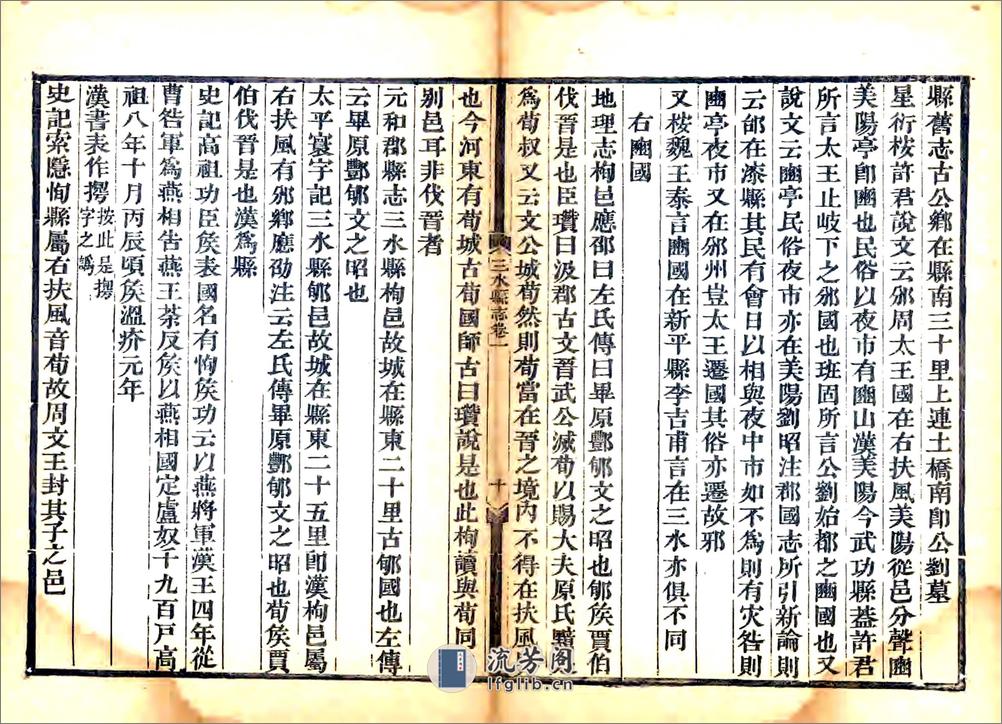 縣舊志古公鄉在縣南三十里上連土橋南卽公劉墓
星衍桉許君說文云邠周太王國在右扶風美陽從邑分聲豳
美陽亭卽豳也民俗以夜市有豳山漢美陽今武功縣葢許君
所言太王止岐下之邠國也班固所言公劉始都之豳國也又
說文云豳亭民俗夜市亦在美陽劉昭注郡國志所引新論則
云邠在漆縣其民有會日以相與夜中市如不爲則有灾咎則
豳亭夜市又在邠州豈太王遷國其俗亦遷故邪
又桉魏王泰言豳國在新平縣李吉甫言在三水亦俱不同
右豳國
地理志栒邑應卲曰左氏傳曰畢原酆郇文之昭也郇矦賈伯
伐晉是也臣瓚曰汲郡古文晉武公滅荀以賜大夫原氏黯是
爲荀叔又云文公城荀然則荀當在晉之境內不得在扶風
三水縣志卷一
十
也今河東有荀城古荀國師古曰瓚說是也此栒讀與荀同
別邑耳非伐晉者
元和郡縣志三水縣栒邑故城在縣東二十里古郇國也左傳
云畢原酆郇文之昭也
太平寰宇記三水縣郇邑故城在縣東二十五里卽漢栒邑屬
右扶風有邠鄉應劭注云左氏傳畢原酆郇文之昭也荀矦賈
伯伐晉是也漢爲縣
史記高祖功臣矦表國名有恂矦功云以燕將軍漢王四年從
曹咎軍爲燕相告燕王荼反矦以燕相國定盧奴千九百戸高
祖八年十月丙辰頃矦溫疥元年
漢書表作撔按此是撔字之譌
史記索隱恂縣屬右扶風音荀故周文王封其子之邑
流芳阁
lfglib.cn